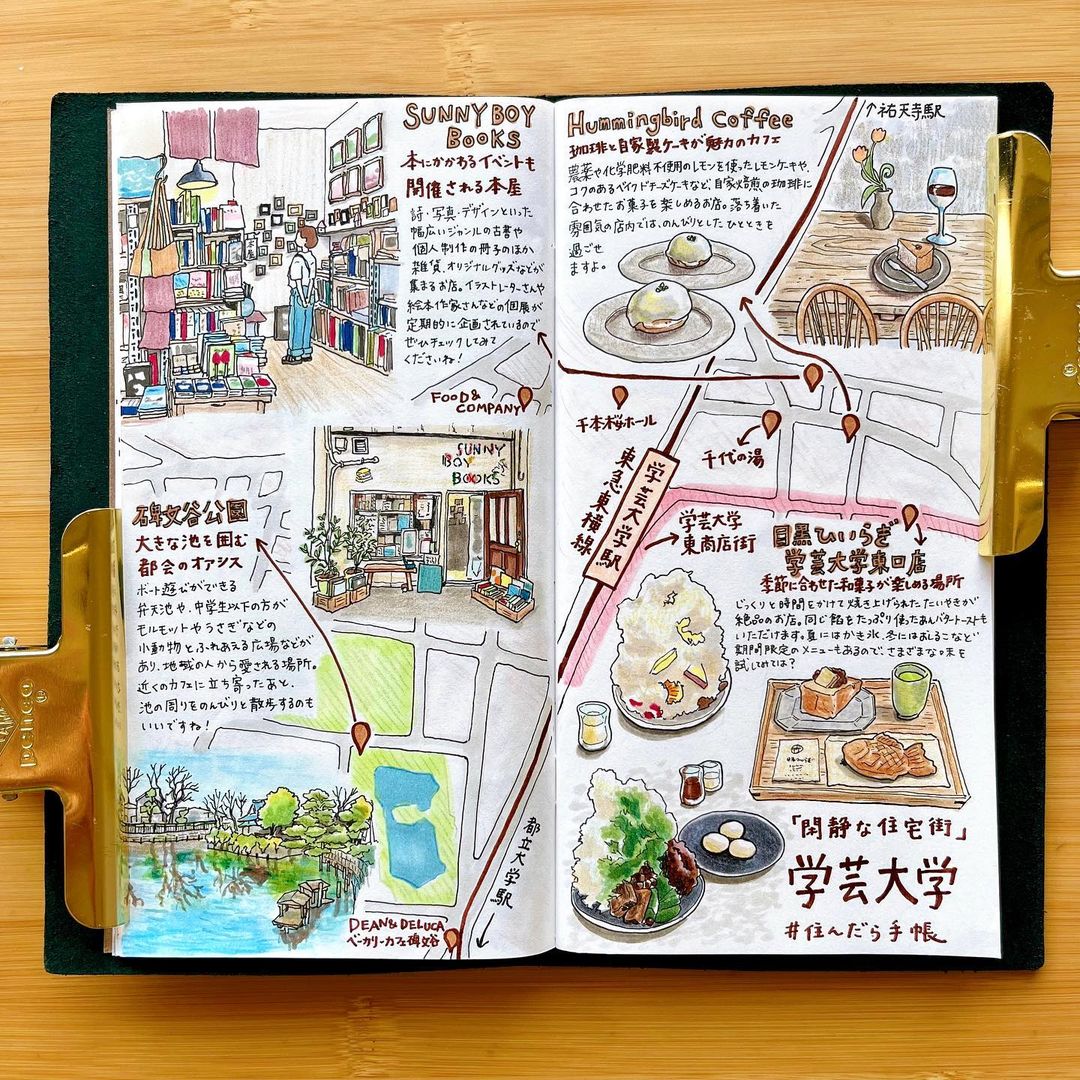 SUNNY BOY
BOOKS
本にかかわるイベントも
開催される本屋
詩・写真・デザインといった
幅広いジャンルの古書や
個人制作の冊子のほか
雑貨、オリジナルグッズなどが
集まるお店。イラストレーターさんや
絵本作家さんなどの個展が
定期的に企画されているので
ぜひチェックしてみて
くださいね!
FOOD &
COMPANY
SUNNY
BOY
BOOKS
碑文谷公園
大きな池を囲む
都会のオアシス
ボート遊びができる
弁天池や、中学生以下の方が
モルモットやうさぎなどの
小動物とふれあえる広場などが
あり、地域の人から愛される場所。
近くのカフェに立ち寄ったあと、
池の周りをのんびりと散歩するのも
いいですね!
DEAN & DELUCA
ベーカリーカフェ碑文谷
都立大学駅
Hummingbird Coffee
珈琲と自家製ケーキが魅力のカフェ
農薬や化学肥料不使用のレモンを使ったレモンケーキや、
コクのあるベイクドチーズケーキなど、自家焙煎の珈琲に
合わせたお菓子を楽しめるお店。落ち着いた
雰囲気の店内では、のんびりとしたひとときを
過ごせ
ますよ。
↑祐天寺駅
千本桜ホール
千代の湯
学芸大学駅
東急東横線
学芸大学
東商店街
目黒ひいらぎ
学芸大学東口店
季節に合わせた和菓子が楽しめる場所
じっくりと時間をかけて焼き上げられたたいやきが
絶品のお店。同じ餡をたっぷり使ったあんバタートーストも
いただけます。夏にはかき氷、冬にはおしるこなど
期間限定のメニューもあるので、さまざまな味を
試してみては?
「閑静な住宅街」
学芸大学
#住んだら手帳
DELICA